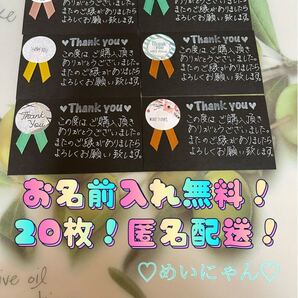 Thank you♡
この度は ご購入頂き
ありがとうございました。
またのご縁がありましたら
よろしくお願い致します。
Thank you♡
この度は ご購入頂き
ありがとうございました。
またのご縁がありましたら
よろしくお願い致します。
THANK YOU
♡Thank you♡
この度は ご購入頂き
ありがとうございました。
またのご縁がありましたら
よろしくお願い致します。
♡Thank you♡
この度は ご購入頂き
ありがとうございました。
またのご縁がありましたら
よろしくお願い致します。
Thank You
♡Thank you♡
この度は ご購入頂き
ありがとうございました。
またのご縁がありましたら
よろしくお願い致します。
♡Thank you♡
この度は ご購入頂き
ありがとうございました。
またのご縁がありましたら
よろしくお願い致します。
お名前入れ無料！
20枚！匿名配送！
olive oil
♡めいにゃん♡